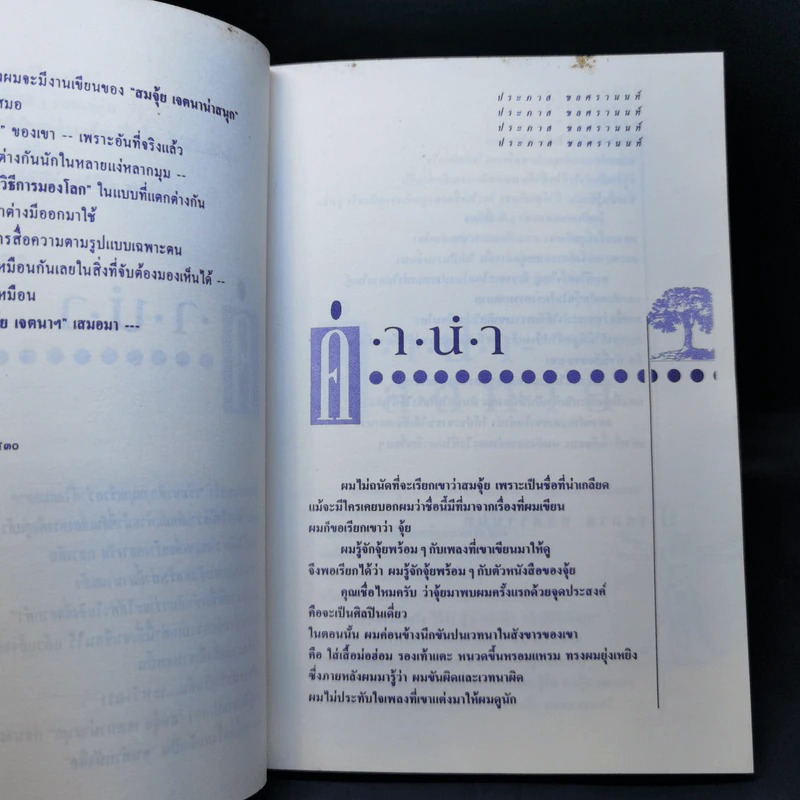 ผมจะมีงานเขียนของ "สมจุ้ย เจตนาน่าสนุก"
เสมอ
" ของเขา -- เพราะอันที่จริงแล้ว
ต่างกันนักในหลายแง่หลากมุม --
วิธีการมองโลก" ในแบบที่แตกต่างกัน
ต่างมีออกมาใช้
การสื่อความตามรูปแบบเฉพาะตน
เหมือนกันเลยในสิ่งที่จับต้องมองเห็นได้ --
เหมือน
ย เจตนาฯ" เสมอมา ---
๓๐
ประภาส ชลศรานนท์
ประภาส ชลศรานนท์
ประภาส ชลศรานนท์
ประภาส ชลศรานนท์
คำ·นำ
ผมไม่ถนัดที่จะเรียกเขาว่าสมจุ้ย เพราะเป็นชื่อที่น่าเกลียด
แม้จะมีใครเคยบอกผมว่าชื่อนี้มีที่มาจากเรื่องที่ผมเขียน
ผมก็ขอเรียกเขาว่า จุ้ย
ผมรู้จักจุ้ยพร้อม ๆ กับเพลงที่เขาเขียนมาให้ดู
จึงพอเรียกได้ว่า ผมรู้จักจุ้ยพร้อม ๆ กับตัวหนังสือของจุ้ย
คุณเชื่อไหมครับ ว่าจุ้ยมาพบผมครั้งแรกด้วยจุดประสงค์
คือจะเป็นศิลปินเดี่ยว
ในตอนนั้น ผมค่อนข้างนึกขันปนเวทนาในสังขารของเขา
คือ ใส่เสื้อม่อฮ่อม รองเท้าแตะ หนวดขึ้นหรอมแหรม ทรงผมยุ่งเหยิง
ซึ่งภายหลังผมมารู้ว่า ผมขันผิดและเวทนาผิด
ผมไม่ประทับใจเพลงที่เขาแต่งมาให้ผมดูนัก